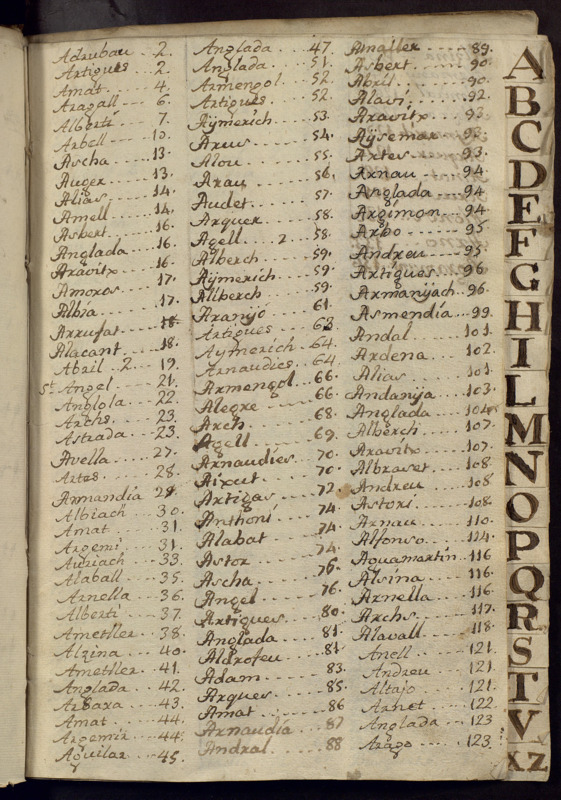 Adrubau - 2.
Artigues - 2.
Amat - 4.
Aragall - 6.
Alberti - 7.
Arbell - 10.
Ascha - 13.
Auger - 13.
Alias - 14.
Amell - 14.
Asbert - 16.
Anglada - 16.
Aravitx - 16.
Amoros - 17.
Albia - 17.
Arrufat - 18.
Alacant - 18.
Abril 2 - 19.
St. Angel - 21.
Anglola - 22.
Archs - 23.
Astrada - 23.
Avella - 27.
Artes - 28.
Armandia 29.
Albiach - 30.
Amat - 31.
Argemi - 31.
Auriach - 33.
Alaball - 35.
Arnella - 36.
Alberti - 37.
Ametller - 38.
Alzina - 40.
Ametller - 41.
Anglada - 42.
Arbaxa - 43.
Amat - 44.
Argemir - 44.
Aguilar - 45.
Anglada - 47.
Anglada - 51.
Armengol - 52.
Artigues - 52.
Aymerich - 53.
Arus - 54.
Alou - 55.
Arau - 56.
Audet - 57.
Arquer - 58.
Agell 2 - 58.
Alberch - 59.
Aymerich - 59.
Allberch - 59.
Aranyó - 61.
Artigues - 63.
Aymerich - 64.
Arnaudies - 64.
Armengol - 66.
Alegre - 66.
Arch - 68.
Agell - 69.
Arnaudies - 70.
Aixut - 70.
Artigas - 72.
Anthoni - 74.
Alabat - 74.
Astor - 74.
Ascha - 76.
Angel - 76.
Artigues - 80.
Anglada - 81.
Aldrofeu - 81.
Adam - 83.
Arques - 85.
Amat - 86
Arnaudia - 87
Andral - 88
Amaller - 89.
Asbert - 90.
Abril - 90.
Alavi - 92.
Aravitx - 93.
Aysemar - 93.
Artes - 93.
Arnau - 94.
Anglada - 94
Argimon - 94.
Arbo - 95
Andreu - 95.
Artigues - 96.
Armanyach - 96.
Asmendia - 99.
Andal - 101.
Ardena - 102.
Alias - 101.
Andanija - 103.
Anglada - 104.
Alberch - 107.
Aravitx - 107.
Albraset - 108
Andreu - 108
Astori - 108.
Arnau - 110.
Alfonso - 114.
Aguamartin - 116
Alsina - 116.
Arnella - 116.
Archs - 117.
Alavall - 118.
Anell - 121.
Andreu - 121.
Altajo - 121.
Arnet - 122
Anglada - 123
Arago - 123.
A
B
C
D
E
F
G
H
I
L
M
N
O
P
Q
R
S
T
V
X Z